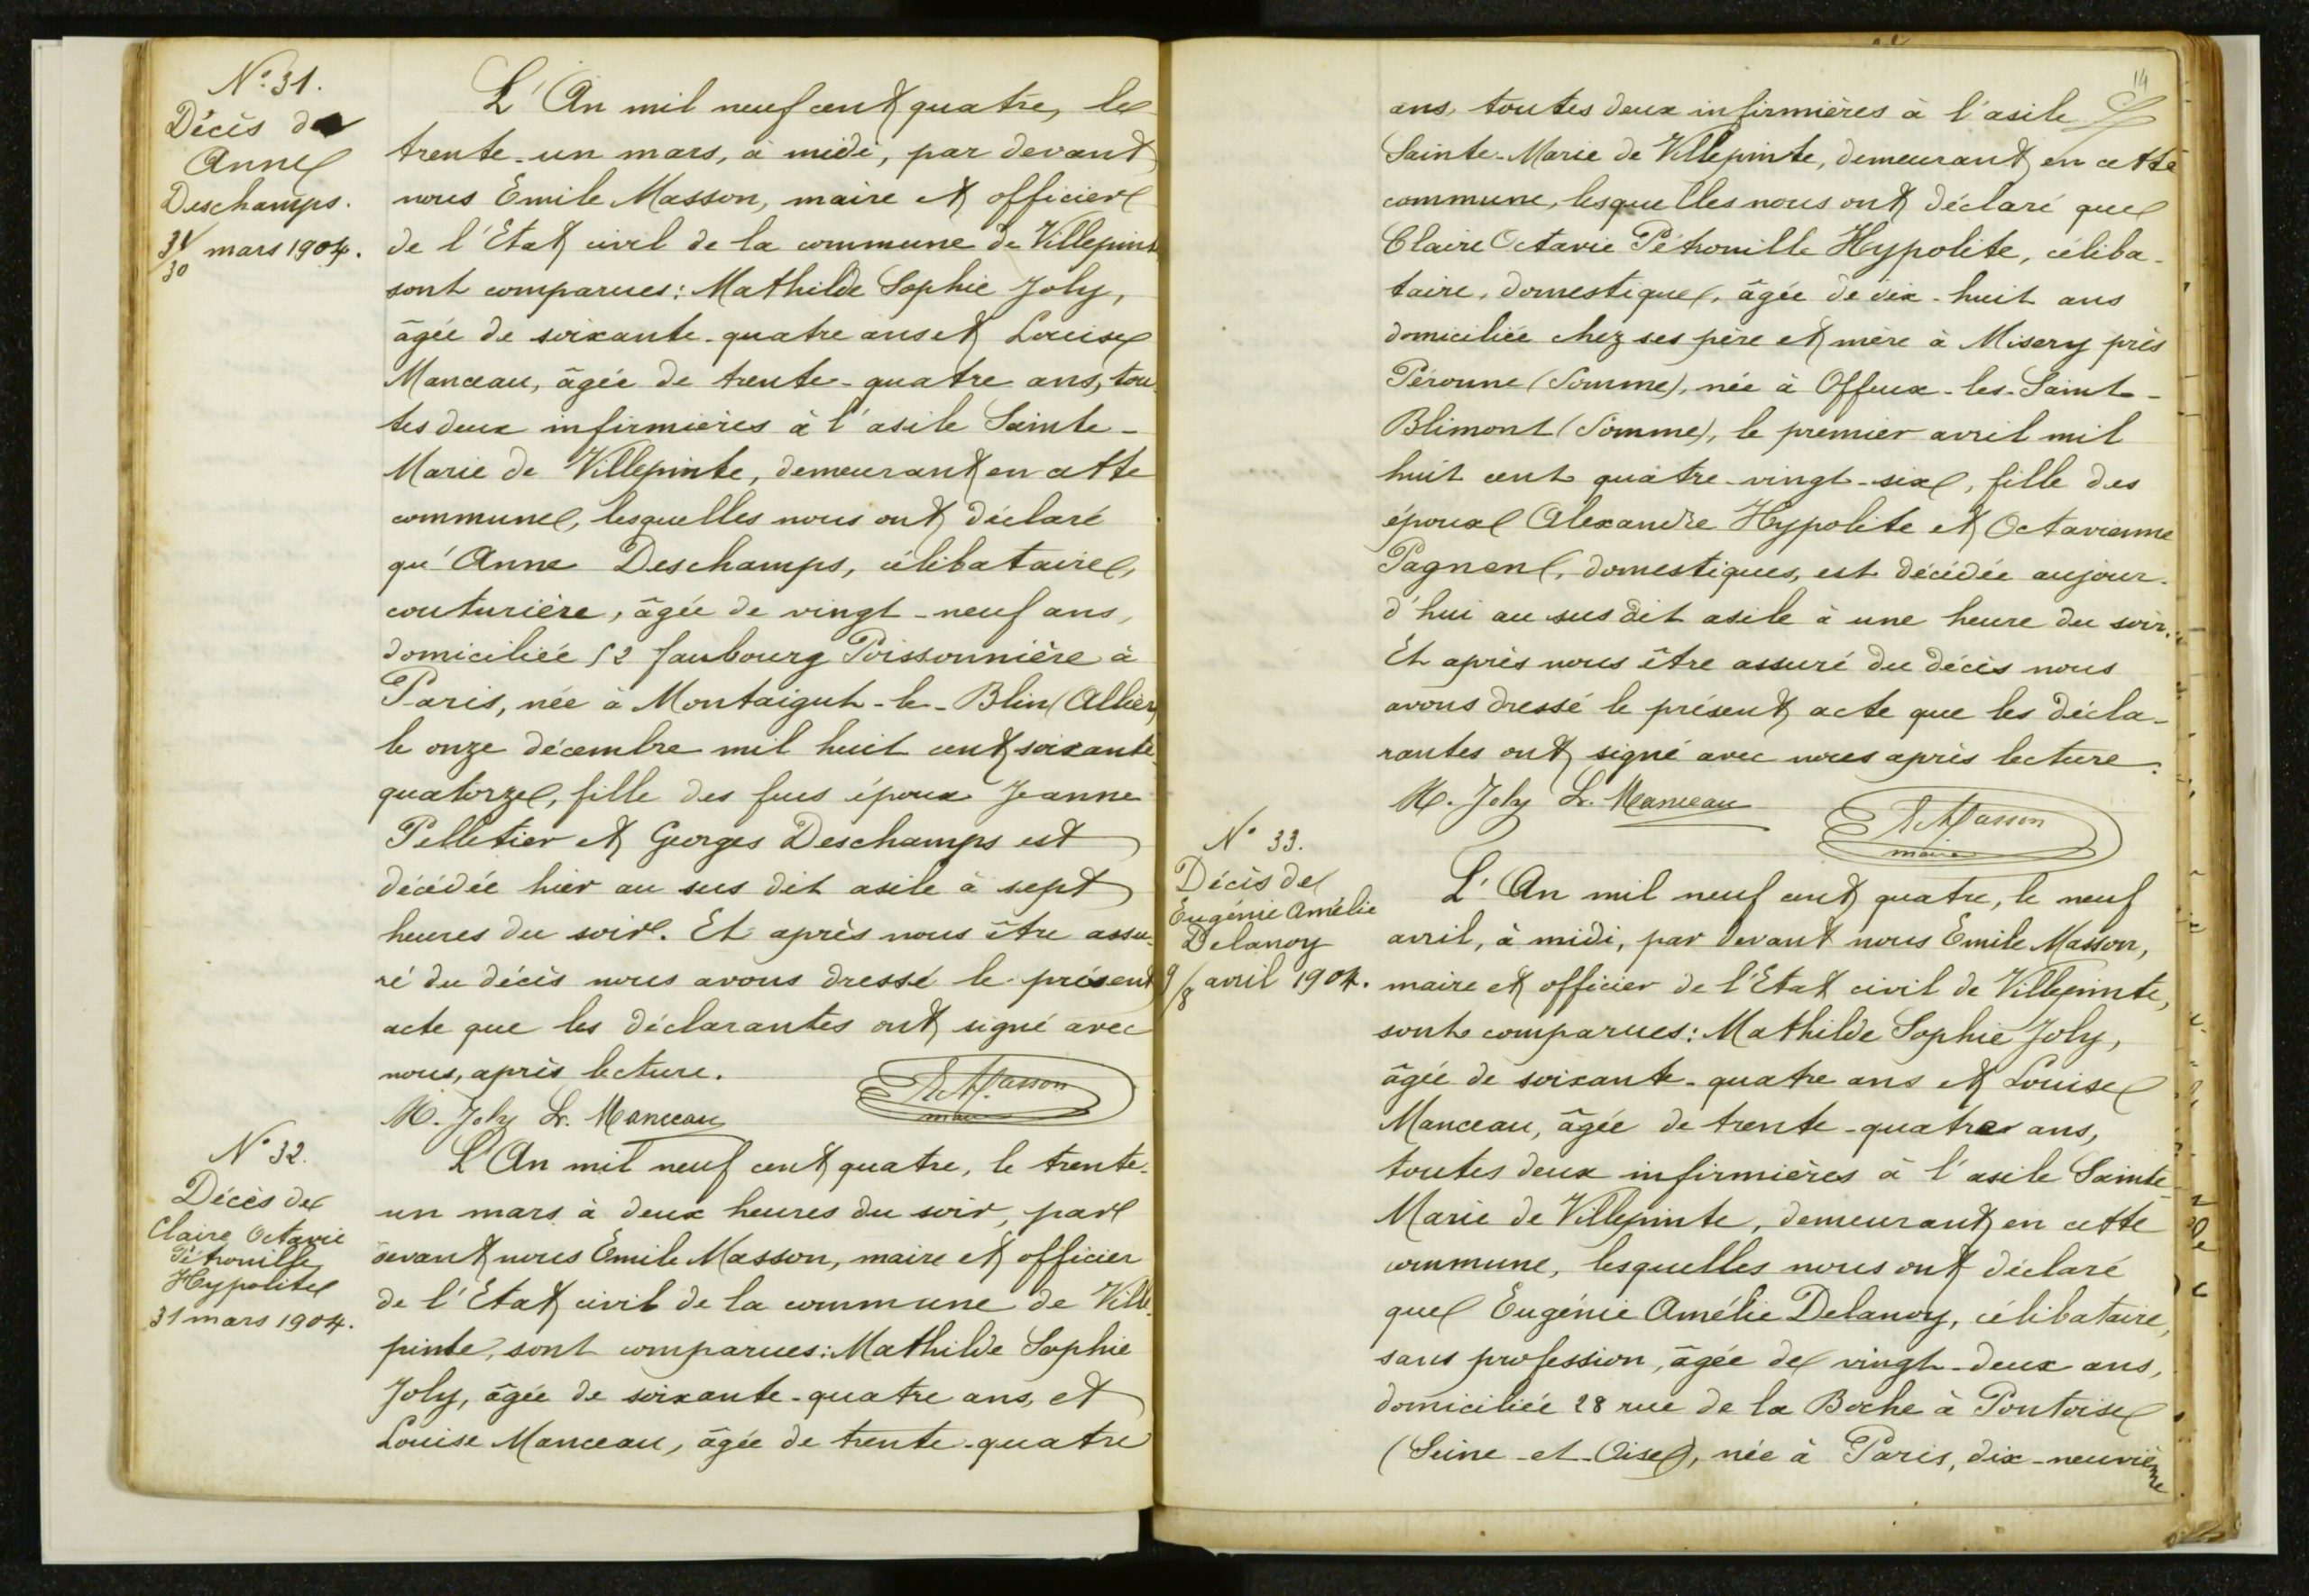 N° 31.
Décès de
Anne
Deschamps.
31/30 mars 1904.
L'An mil neuf cent quatre, le
trente-un mars, à midi, par devant
nous Emile Masson, maire et officier
de l'Etat civil de la commune de Villepinte
sont comparues: Mathilde Sophie Joly,
âgée de soixante-quatre ans et Louise
Manceau, âgée de trente-quatre ans, tou-
tes deux infirmières à l'asile Sainte-
Marie de Villepinte, demeurant en cette
commune, lesquelles nous ont déclaré
qu'Anne Deschamps, célibataire,
couturière, âgée de vingt-neuf ans,
domiciliée 52 faubourg Poissonnière à
Paris, née à Montaigut-le-Blin (Allier)
le onze décembre mil huit cent soixante
quatorze, fille des feus époux Jeanne
Pelletier et Georges Deschamps est
décédée hier au sus dit asile à sept
heures du soir. Et après nous être assu-
ré du décès nous avons dressé le présent
acte que les déclarantes ont signé avec
nous, après lecture.
M. Joly Lse. Manceau
E. Masson
maire
N° 32.
Décès de
Claire Octavie
Pétronille
Hypolite
31 mars 1904.
L'An mil neuf cent quatre, le trente-
un mars à deux heures du soir, par
devant nous Emile Masson, maire et officier
de l'Etat civil de la commune de Ville-
pinte, sont comparues: Mathilde Sophie
Joly, âgée de soixante-quatre ans, et
Louise Manceau, âgée de trente-quatre
14
ans, toutes deux infirmières à l'asile
Sainte-Marie de Villepinte, demeurant en cette
commune, lesquelles nous ont déclaré que
Claire Octavie Pétronille Hypolite, céliba-
taire, domestique, âgée de dix-huit ans
domiciliée chez ses père et mère à Misery près
Péronne (Somme), née à Offeux-les-Saint-
Blimont (Somme), le premier avril mil
huit cent quatre-vingt-six, fille des
époux Alexandre Hypolite et Octavienne
Pagnen, domestiques, est décédée aujour-
d'hui au sus dit asile à une heure du soir.
Et après nous être assuré du décès nous
avons dressé le présent acte que les décla-
rantes ont signé avec nous après lecture.
M. Joly Lse. Manceau
E. Masson
maire
N° 33.
Décès de
Eugénie Amélie
Delanoy
9/8 avril 1904.
L'An mil neuf cent quatre, le neuf
avril, à midi, par devant nous Emile Masson,
maire et officier de l'Etat civil de Villepinte,
sont comparues: Mathilde Sophie Joly,
âgée de soixante-quatre ans et Louise
Manceau, âgée de trente-quatre ans,
toutes deux infirmières à l'asile Sainte-
Marie de Villepinte, demeurant en cette
commune, lesquelles nous ont déclaré
que Eugénie Amélie Delanoy, célibataire,
sans profession, âgée de vingt-deux ans,
domiciliée 28 rue de la Boche à Pontoise
(Seine-et-Oise), née à Paris, dix-neuvième